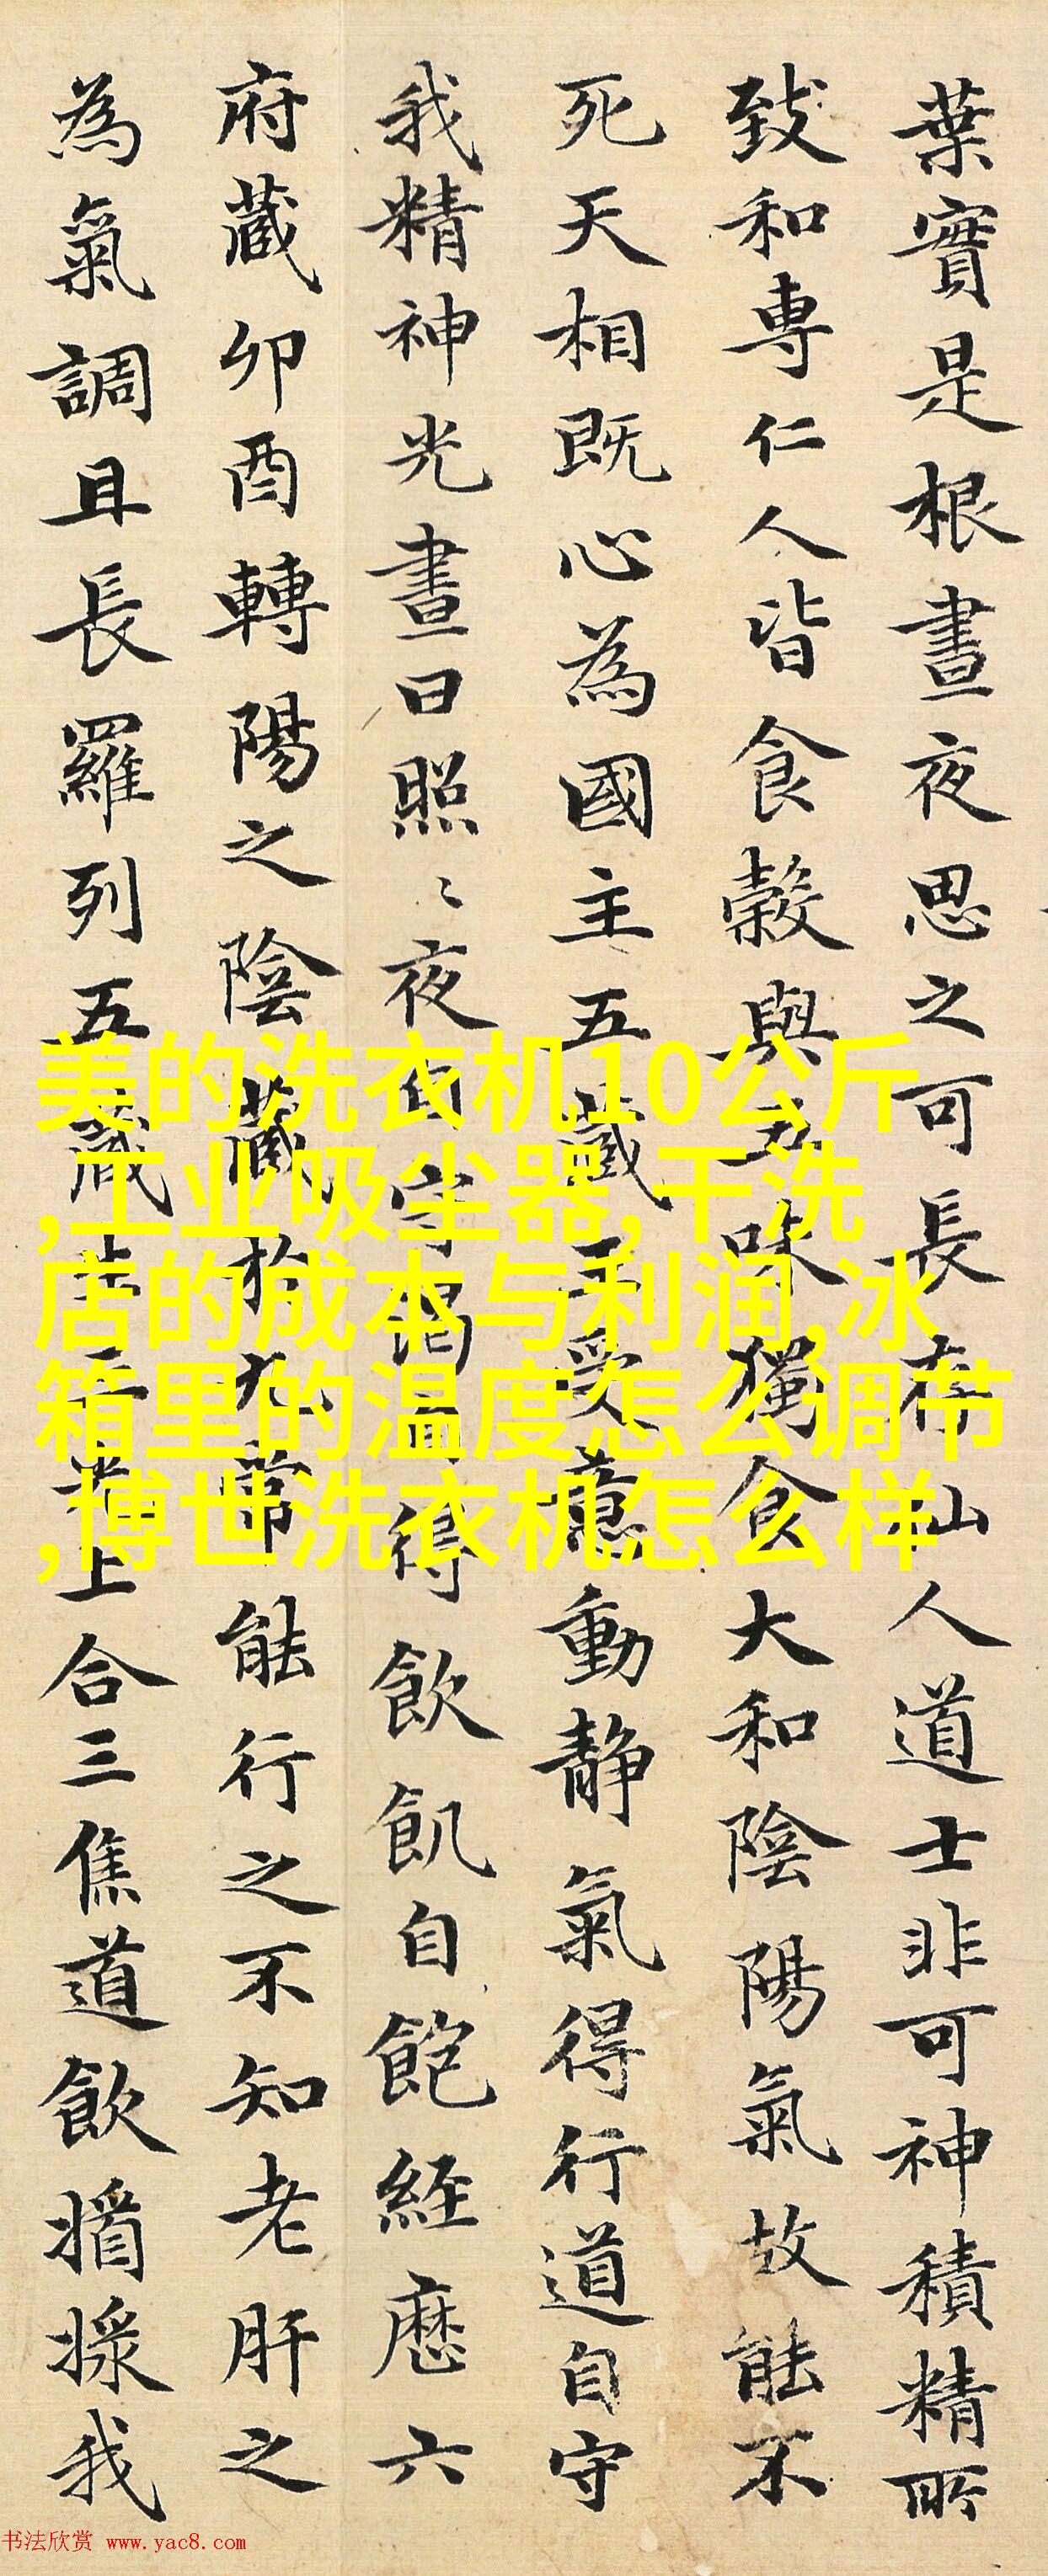 葉實是根晝夜思之可長存仙人道士非可神積精所
致和専仁人皆食榖與五味獨食大和陰陽氣故能不
死天相既心為國主五藏王受意動静氣得行道自守
我精神光晝日照〻夜自守渴自得飲飢自飽経歷六
府藏卯酉轉陽之陰藏於九常能行之不知老肝之
為氣調且長羅列五藏生三光上合三焦道飲
我
美的洗衣机10公斤
,工业吸尘器,干洗
店的成本与利润,冰
箱里的温度怎么调节
,博世洗衣机怎么样
书法欣赏 www.yac8.com